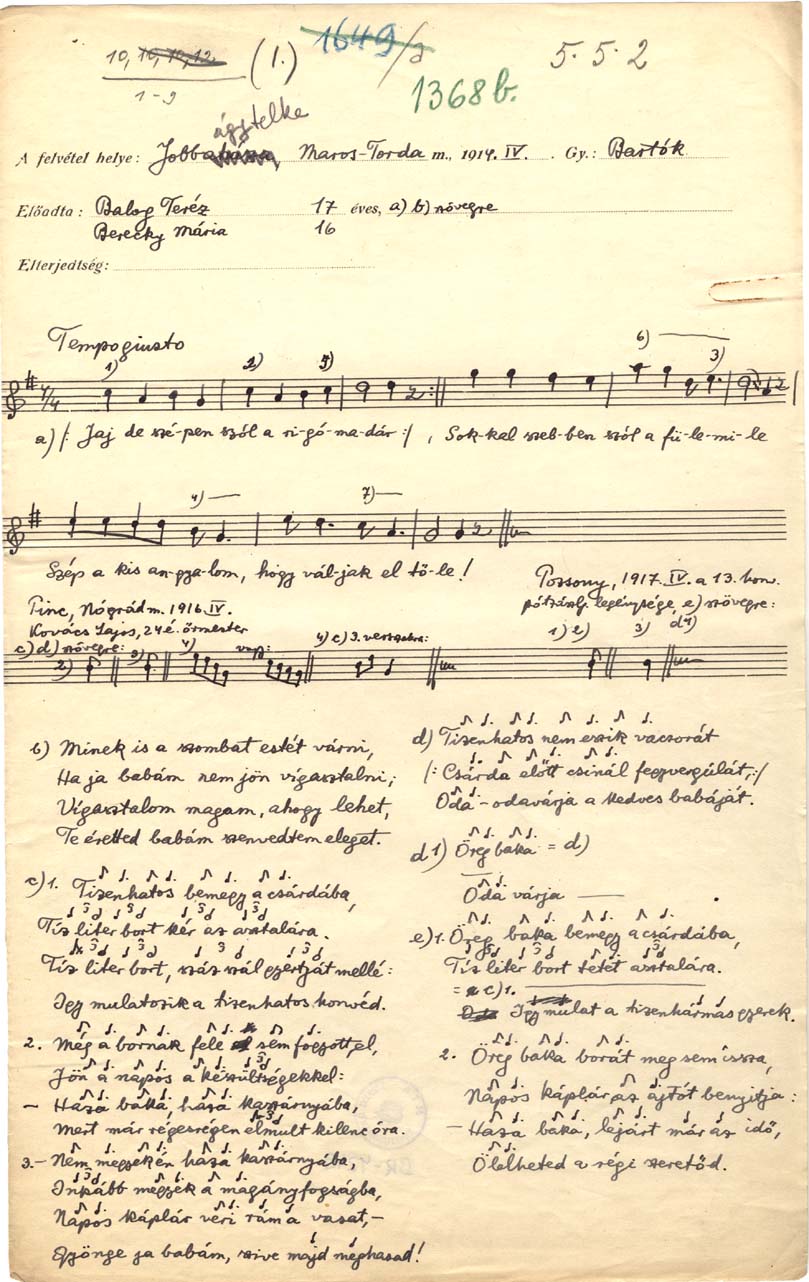 10, 10, 10, 12. (1.) 1649/J 5. 5. 2
1-9 1368b.
ágytelke
A felvétel helye: Jobba Maros-Torda m., 1914. IV. Gy.: Bartók
Előadta: Balog Teréz 17 éves, a) b) szövegre
Berecky Mária 16
Elterjedtség:
Tempo giusto
1) 2) 5) 6) 3)
a) /: Jaj de szé-pen szól a ri-gó-ma-dár :/, Sok-kal szeb-ben szól a fü-le-mi-le
4) 7)
Szép a kis an-gya-lom, hogy vál-jak el tő-le!
Pinc, Nógrád m. 1916. IV.
Kovács Lajos, 24 é. őrmester
c) d) szövegre:
Pozsony, 1917. IV. a 13. hon.
pótzászlj. legénysége, e) szövegre:
2) 3) 4) vagy: 4) c) 3. versszakra: 1) 2) 3) d4)
b) Minek is a szombat estét várni,
Ha ja babám nem jön vígasztalni;
Vígasztalom magam, ahogy lehet,
Te éretted babám szenvedtem eleget.
c) 1. Tizenhatos bemegy a csárdába,
Tíz liter bort kér az asztalára.
Tíz liter bort, száz szál gyertyát mellé:
Igy mulatozik a tizenhatos honvéd.
2. Még a bornak fele sem fogyott el,
Jön a napos a készültségekkel:
- Haza baka, haza kaszárnyába,
Mert már régesrégen elmult kilenc óra.
3. - Nem megyek én haza kaszárnyába,
Inkább megyek a magányfogságba,
Napos káplár veri rám a vasat, -
Gyönge ja babám, szive majd meghasad!
d) Tizenhatos nem eszik vacsorát
/: Csárda előtt csinál fegyvergúlát, :/
Oda - odavárja a kedves babáját.
d1) Öreg baka = d)
Oda várja
e) 1. Öreg baka bemegy a csárdába,
Tíz liter bort tétet asztalára.
= c) 1.
Igy mulat a tizenhármas gyerek.
2. Öreg baka borát meg sem issza,
Napos káplár az ajtót benyitja:
- Haza baka, lejárt már az idő,
Ölelheted a régi szeretőd.